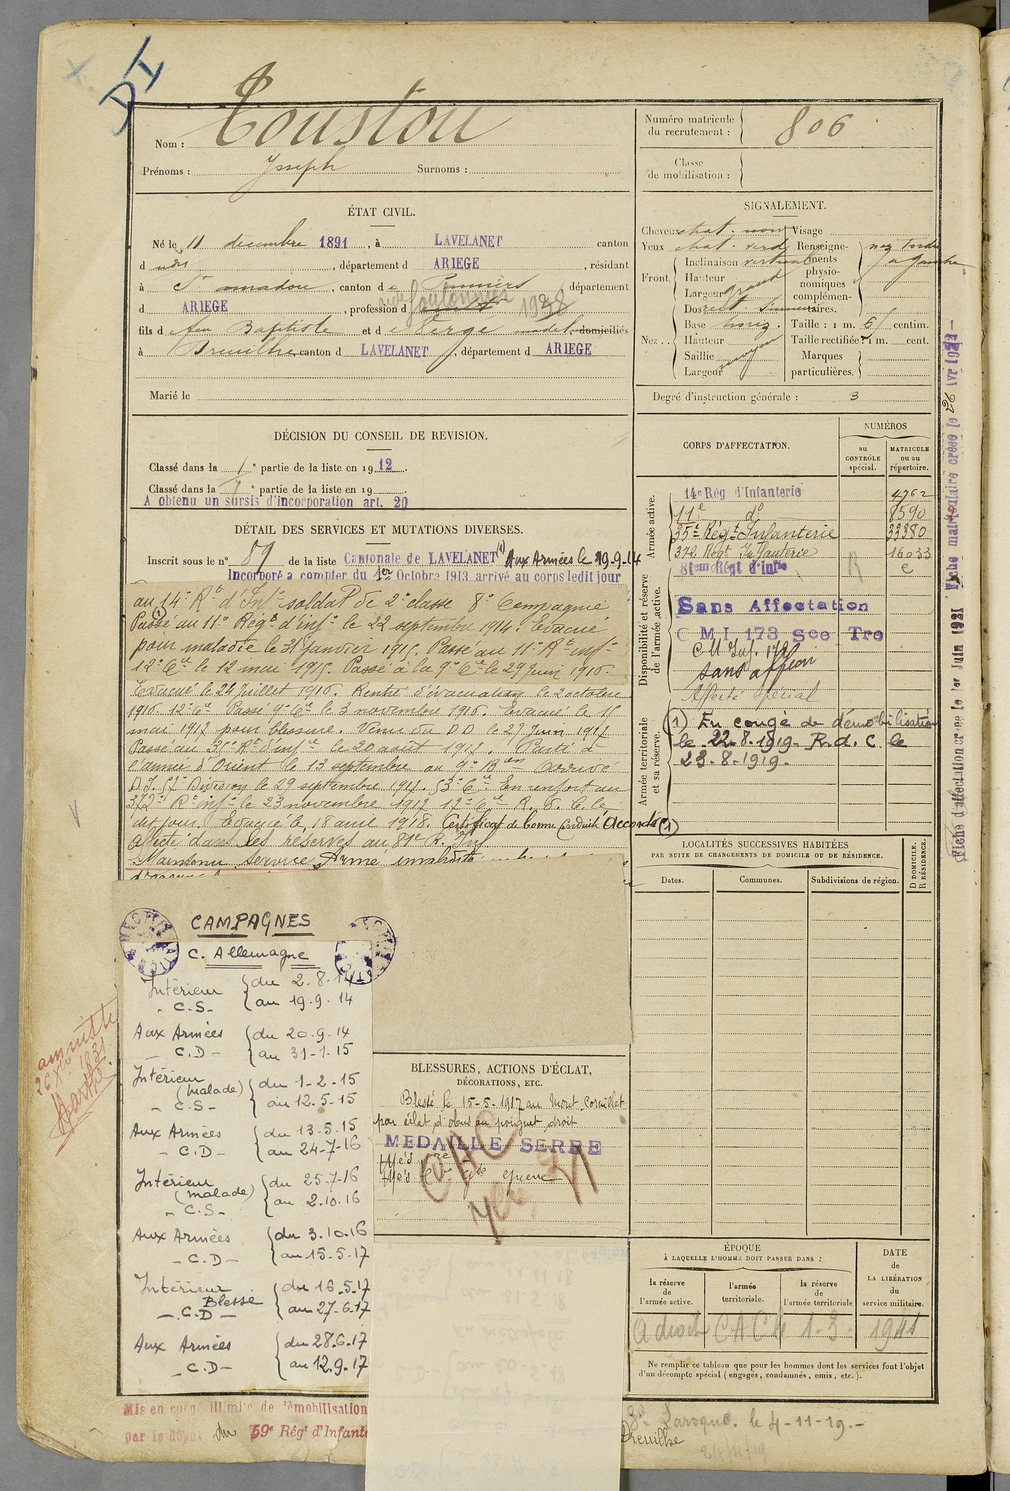 DI
Nom : Toustou
Prénoms : Joseph Surnoms :
Numéro matricule du recrutement : 806
Classe de mobilisation :
ÉTAT CIVIL.
Né le 11 décembre 1891, à LAVELANET canton
d udit, département d ARIEGE, résidant
à St amadou, canton de Pamiers, département
d ARIEGE, profession d
fils d e feu Baptiste et d e Serge domiciliés
à Dreuilhe canton d LAVELANET, département d ARIEGE
Marié le
SIGNALEMENT.
Cheveux chat. noir Visage
Yeux chat. verd Renseignements physionomiques complémentaires. nez tordu à gauche
Front. Inclinaison vertical
Hauteur
Largeur grand
Nez. Dos rect. Sinueux
Base horiz. Taille : 1 m. 61 centim.
Hauteur Taille rectifiée : 1 m. cent.
Saillie moyen Marques
Largeur particulières.
Degré d'instruction générale : 3
DÉCISION DU CONSEIL DE REVISION.
Classé dans la 1e partie de la liste en 1912.
Classé dans la 1e partie de la liste en 19
A obtenu un sursis d'incorporation art. 20
DÉTAIL DES SERVICES ET MUTATIONS DIVERSES.
Inscrit sous le n° 59 de la liste Cantonale de LAVELANET (1) Aux Armées le 19-9-14
Incorporé a compter du 1er Octobre 1913 arrivé au corps ledit jour
au 14e Rgt d'Infie soldat de 2e classe 8e Compagnie
Passé au 11e Régt d'infie le 22 septembre 1914. Evacué
pour maladie le 31 janvier 1915. Passé au 11e Rt infie
12e Cie le 12 mai 1915. Passé à la 9e Cie le 29 Juin 1916.
Evacué le 24 juillet 1916. Rentré d'évacuation le 2 octobre
1916. 12e Cie Passé 9e Cie le 3 novembre 1916. Evacué le 15
mai 1917 pour blessure. Venu du DD le 27 Juin 1917
Passé au 35e Rt d'infie le 20 août 1917. Parti à
l'armée d'Orient le 13 septembre au 9e Bon arrivé
D.I. 57e Division le 29 septembre 1917. 53e Cie En renfort au
372e Rt infie le 23 novembre 1917 12e Cie R. d. C. le
dit jour. Evacué le 18 avril 1918. Certificat de bonne conduite Accordé (1)
Affecté dans les réserves au 81e R. Inf
Maintenu service Armé
CAMPAGNES
C. Allemagne
Intérieur - C.S- du 2.8.14 au 19.9.14
Aux Armées - C.D - du 20.9.14 au 31-1-15
Intérieur (malade) - C.S- du 1-2-15 au 12.5.15
Aux Armées - C.D - du 13-5.15 au 24-7-16
Intérieur (malade) - C.S- du 25.7.16 au 2.10.16
Aux Armées - C.D - du 3.10.16 au 15.5.17
Intérieur Blessé - C.D - du 16.5.17 au 27.6.17
Aux Armées - C.D - du 28.6.17 au 12.9.17
amnistie
Mis en congé illimité de démobilisation
par le dépôt du 59e Régt d'Infant
BLESSURES, ACTIONS D'ÉCLAT,
DÉCORATIONS, ETC.
Blessé le 15-5-1917 au Mont Cornillet
par éclat d'obus au poignet droit
MEDAILLE SERBE
CAC
CORPS D'AFFECTATION.
NUMÉROS
au CONTRÔLE spécial.
MATRICULE ou au répertoire.
Armée active.
14e Rég d'Infanterie 4762
11e do 8590
35e Régt Infanterie 33380
372 Régt Infanterie 16033
81em Régt d'Infie R
Disponibilité et réserve de l'armée active.
Sans Affectation
C M I 173 Sce Tre
C M Inf. 172
sans affion
Affecté spécial
Armée territoriale et sa réserve.
(1) En congé de démobilisation
le 22.8.1919. R.d.C. le
23-8-1919.
Fiche d'affectation créée le 1er Juin 1921
Fiche matriculaire créée le 26 Avr
LOCALITÉS SUCCESSIVES HABITÉES
PAR SUITE DE CHANGEMENTS DE DOMICILE OU DE RÉSIDENCE.
Dates. Communes. Subdivisions de région. D DOMICILE. R RÉSIDENCE.
ÉPOQUE
À LAQUELLE L'HOMME DOIT PASSER DANS :
la réserve de l'armée active. l'armée territoriale. la réserve de l'armée territoriale
DATE de LA LIBÉRATION du service militaire.
a droit CACh 1-3-1941
Ne remplir ce tableau que pour les hommes dont les services font l'objet
d'un décompte spécial (engagés, condamnés, omis, etc.).
Laroque. le 4-11-19.-
Dreuilhe